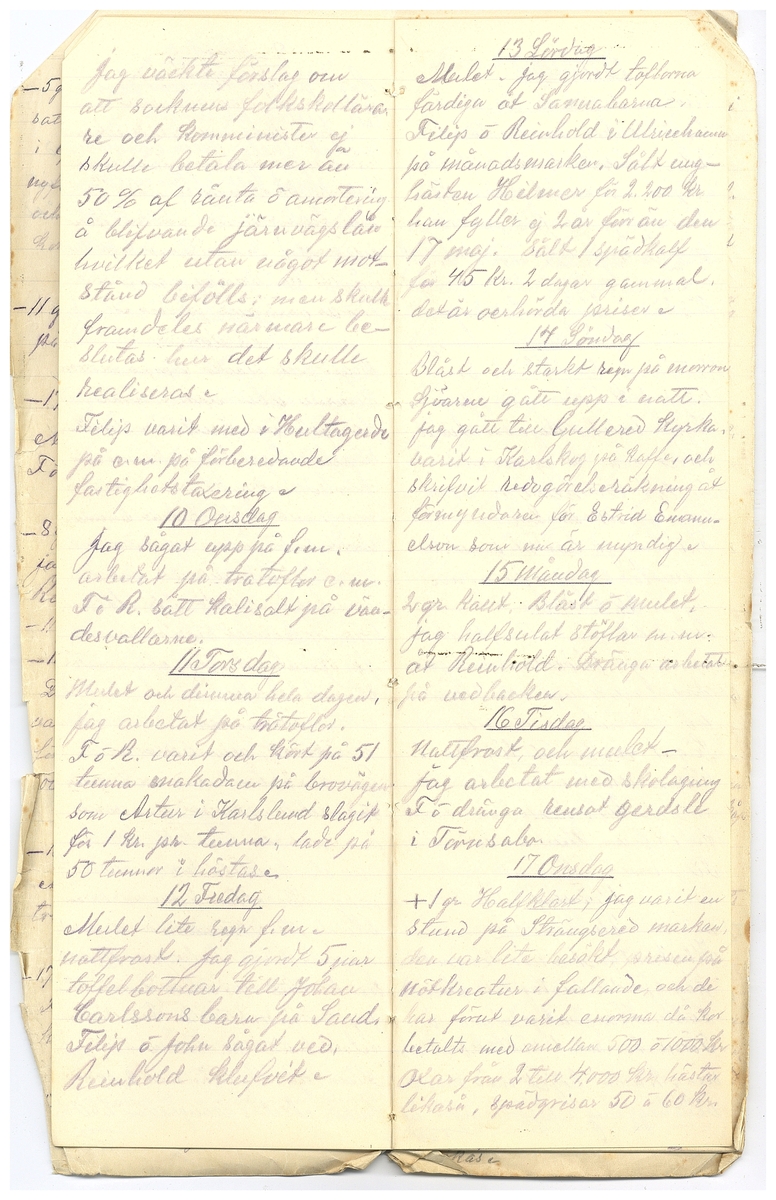 Jag väckte förslag om
att socknens folkskollära-
re och Komminister ej
skulle betala mer än
50% af ränta ö amortering
å blifvande järnvägslån
hvilket utan något mot-
stånd bifölls; men skulle
framdeles närmare be-
slutas hur det skulle
realiseras.
Filip varit med i Hultagerde
på e.m. på förberedande
fastighetstaxering.
10 Onsdag
Jag sågat upp på f.m.
arbetat på trätoflor e.m.
F ö R. sått Kalisalt på vän-
desvallarne.
11 Torsdag
Mulet och dimma hela dagen,
jag arbetat på trätoflor.
F ö R. varit och kört på 51
tunna makadam på brovägen
som Artur i Karlslund slagit
för 1 kr. pr. tunna, lade på
50 tunnor i höstas.
12 Fredag
Mulet lite regn f.m.
nattfrost. Jag gjordt 5 par
toffelbottnar till Johan
Carlssons barn på Sand.
Filip ö John sågat ved.
Reinhold klufvit
13 Lördag
Mulet. jag gjordt toflorna
färdiga åt Sannabarna.
Filip ö Reinhold i Ulricehamn
på månadsmarken. Sålt ung-
hästen Hilmer för 2.200 Kr
han fyller ej 2 år förr än den
17 maj. Sålt 1 spädkalf
för 45 Kr. 2 dagar gammal.
det är oerhörda priser
14 Söndag
Blåst och starkt regn på morron
Sjöarne gått upp i natt.
jag gått till Gullered Kyrka.
varit i Karlskog på Kaffe, och
skrifvit redogörelseräkning åt
förmyndaren för Estrid Emanu-
elson som nu är myndig
15 Måndag
2 gr. kallt; Blåst ö mulet.
jag halfsulat stöflar m.m.
åt Reinhold. Dränga arbetat
på vedbacken.
16 Tisdag
Nattfrost, och mulet-
Jag arbetat med skolagning
F ö dränga rensat gerdsle
i Törnsabo.
17 Onsdag
+1 gr Halfklart; jag varit en
stund på Strängsered marken,
den var lite besökt, prisen på
nötkreatur i fallande, och de
har förut varit enorma då kor
betalts med emellan 500 ö 1000 Kr
Oxar från 2 till 4.000 Kr, hästar
likaså, spädgrisar 50 à 60 kr.